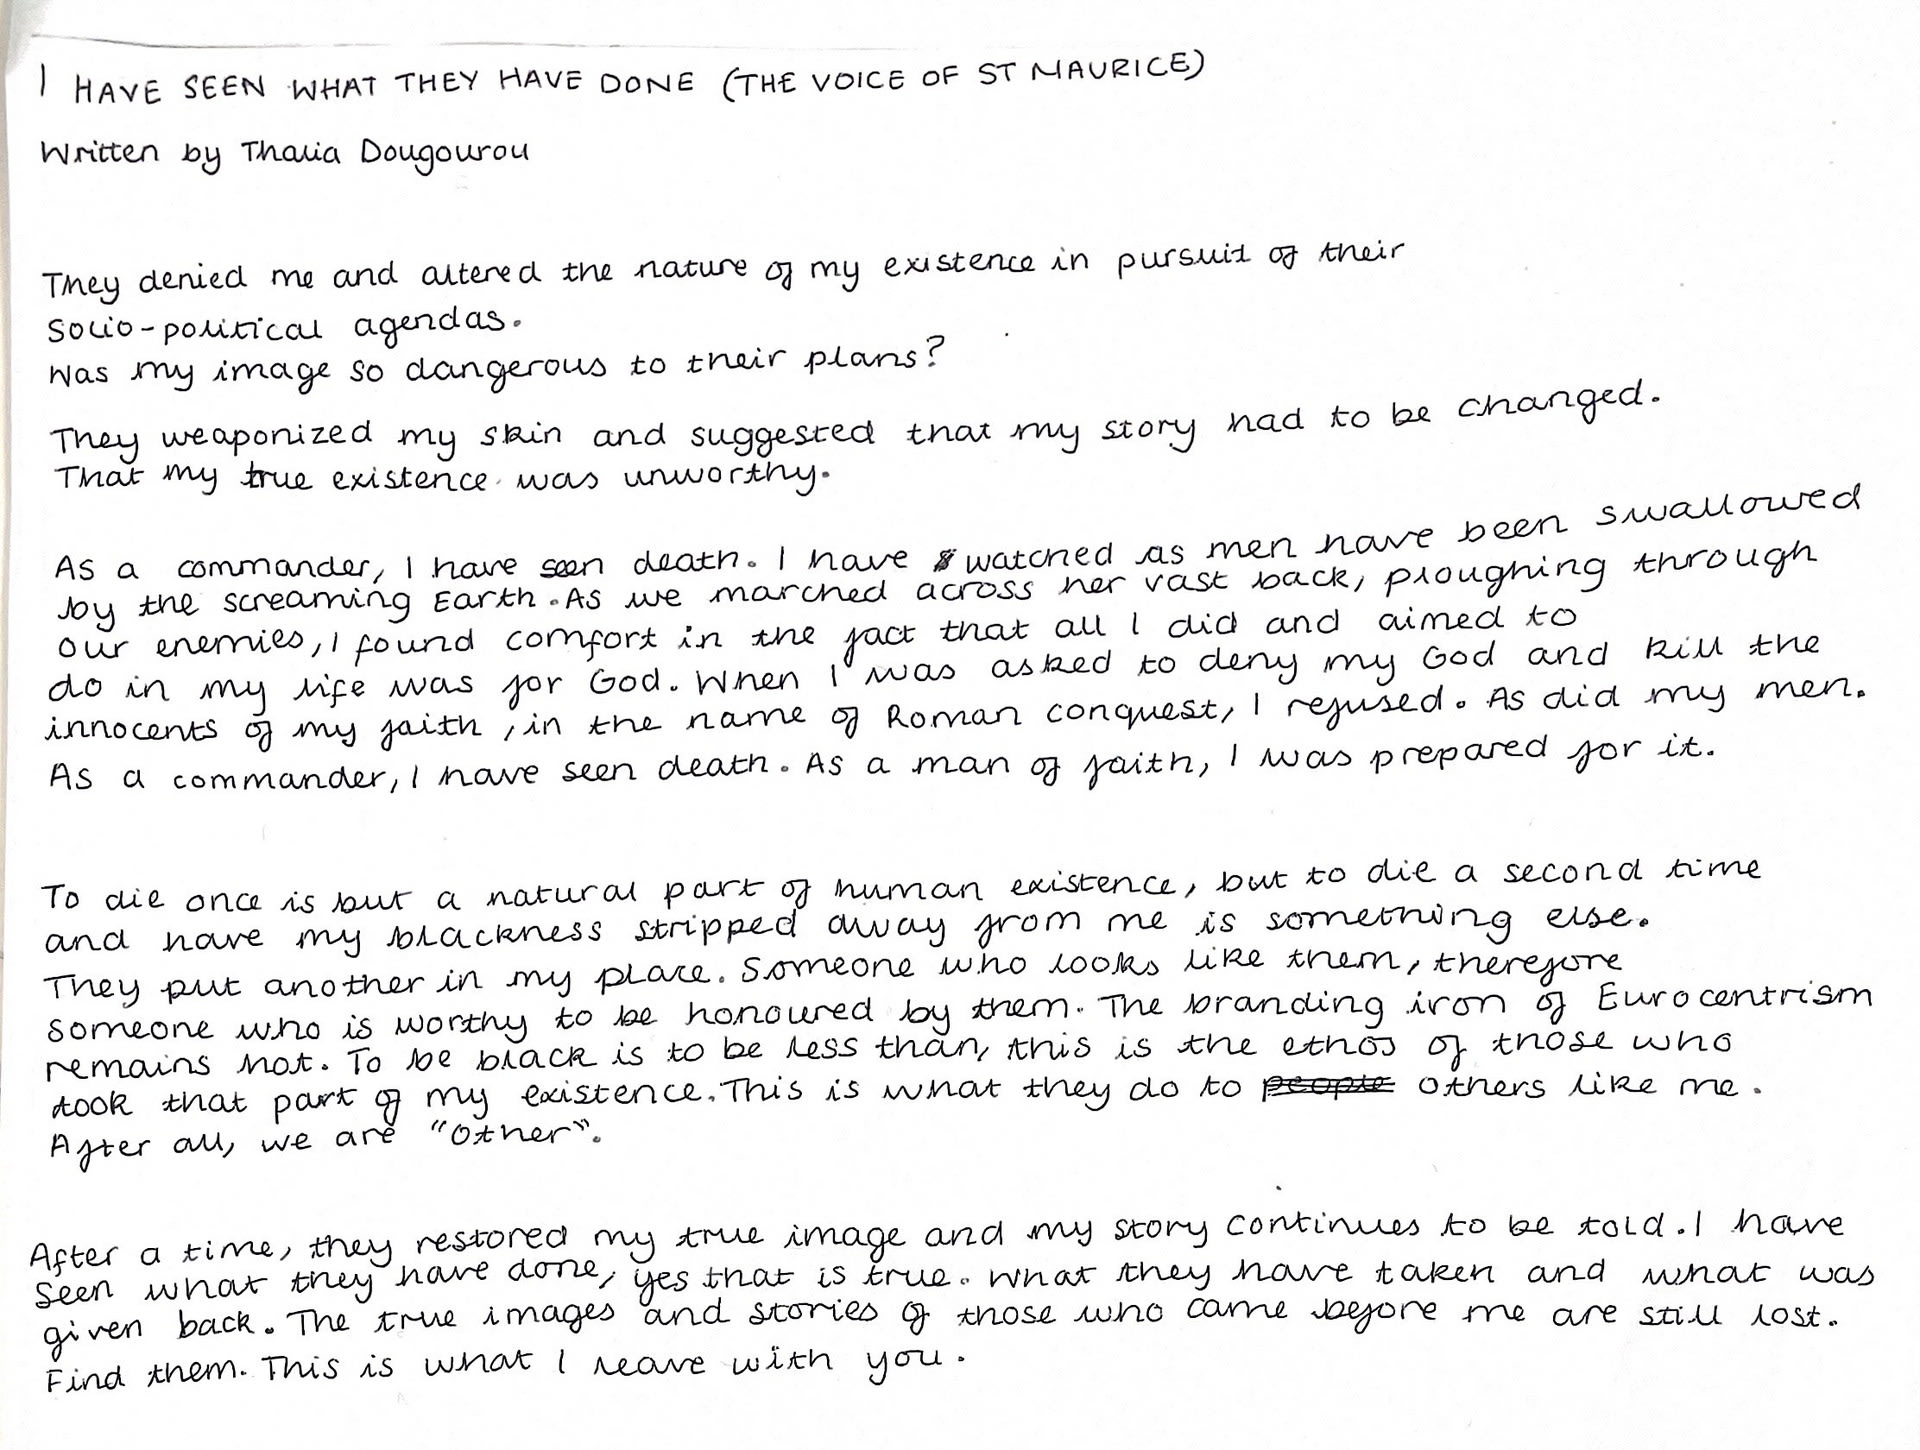 I HAVE SEEN WHAT THEY HAVE DONE (THE VOICE OF ST MAURICE)
Written by Thalia Dougourou
They denied me and altered the nature of my existence in pursuit of their
socio-political agendas.
Was my image so dangerous to their plans?
They weaponized my skin and suggested that my story had to be changed.
That my true existence was unworthy.
As a commander, I have seen death. I have watched as men have been swallowed
by the screaming Earth. As we marched across her vast back, ploughing through
our enemies, I found comfort in the fact that all I did and aimed to
do in my life was for God. When I was asked to deny my God and kill the
innocents of my faith, in the name of Roman conquest, I refused. As did my men.
As a commander, I have seen death. As a man of faith, I was prepared for it.
To die once is but a natural part of human existence, but to die a second time
and have my blackness stripped away from me is something else.
They put another in my place. Someone who looks like them, therefore
someone who is worthy to be honoured by them. The branding iron of Eurocentrism
remains hot. To be black is to be less than, this is the ethos of those who
took that part of my existence. This is what they do to people others like me.
After all, we are "Other".
After a time, they restored my true image and my story continues to be told. I have
seen what they have done, yes that is true. What they have taken and what was
given back. The true images and stories of those who came before me are still lost.
Find them. This is what I leave with you.